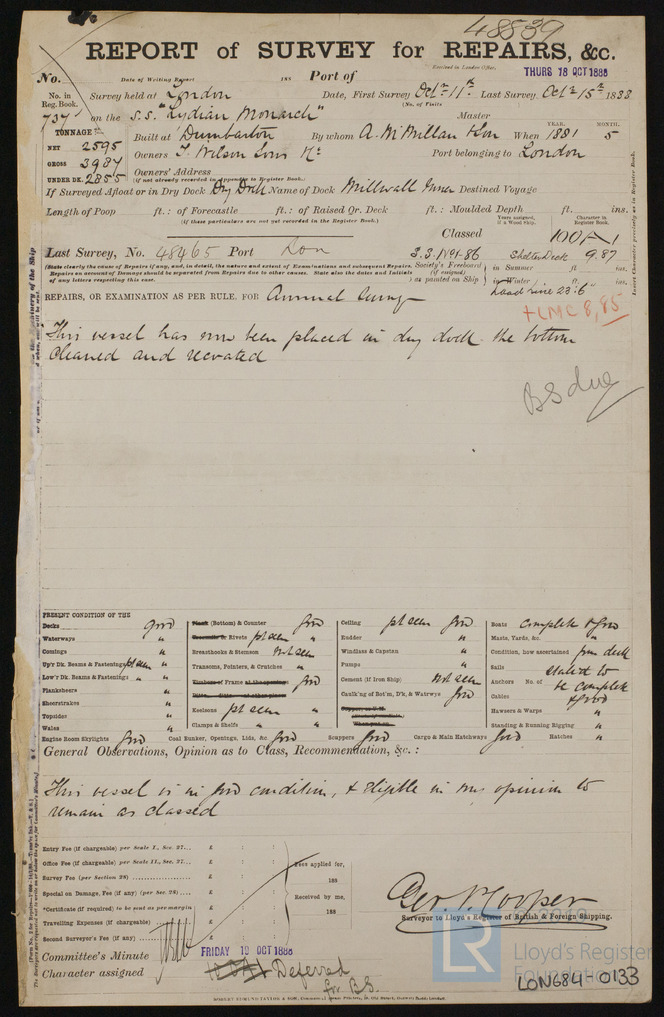 48539
REPORT of SURVEY for REPAIRS, &c.
Received in London Office,
No. Date of Writing Report 188 Port of THURS 18 OCT 1888
No. in Reg. Book. Survey held at London Date, First Survey Octr 11th Last Survey Octr 15th 1888
(No. of Visits
737 on the S.S. "Lydian Monarch" Master
TONNAGE
NET 2595
GROSS 3987
UNDER DK. 2855
Built at Dumbarton By whom A. McMillan & Son When 1881 5
YEAR. MONTH.
Owners T. Wilson Sons Port belonging to London
Owners' Address
(if not already recorded in Appendix to Register Book.)
If Surveyed Afloat or in Dry Dock Dry Dock Name of Dock Millwall Inner Destined Voyage
Length of Poop ft. : of Forecastle ft. : of Raised Qr. Deck ft. : Moulded Depth ft. ins.
(if these particulars are not yet recorded in the Register Book.)
Years assigned, if a Wood Ship. Character in Register Book.
Classed 100 A 1
Last Survey, No. 48465 Port Lon S.S. No 1-86 Shelter Deck 9.87
(State clearly the cause of Repairs if any, and, in detail, the nature and extent of Examinations and subsequent Repairs. Repairs on account of Damage should be separated from Repairs due to other causes. State also the dates and Initials of any letters respecting this case.
Society's Freeboard (if assigned) as painted on Ship in Summer ft ins.
in Winter ft. ins.
Load line 23'6"
REPAIRS, OR EXAMINATION AS PER RULE, FOR Annual Survey
+LMC 8,85
This vessel has now been placed in dry dock the bottom
cleaned and recoated
BS due
PRESENT CONDITION OF THE
Decks good
Waterways "
Comings "
Up'r Dk. Beams & Fastenings pt seen "
Low'r Dk. Beams & Fastenings "
Planksheers "
Sheerstrakes "
Topsides "
Wales "
Plank (Bottom) & Counter good
Treenails or Rivets pt seen "
Breasthooks & Stemson Not seen
Transoms, Pointers, & Crutches "
Timbers of Frame at the openings good
Keelsons pt seen "
Clamps & Shelfs " "
Ceiling pt seen good
Rudder "
Windlass & Capstan "
Pumps "
Cement (if Iron Ship) Not seen
Caulk'ng of Bot'm, D'k, & Waterways good
Boats complete & good
Masts, Yards, &c. "
Condition, how ascertained from deck
Sails stated to
Anchors No. of be complete
Cables & good
Hawsers & Warps "
Standing & Running Rigging "
Engine Room Skylights good Coal Bunker, Openings, Lids, &c. good Scuppers good Cargo & Main Hatchways good Hatches "
General Observations, Opinion as to Class, Recommendation, &c. :
This vessel is in good condition, & eligible in my opinion to
remain as classed
Entry Fee (if chargeable) per Scale I., Sec. 27... £ : :
Office Fee (if chargeable) per Scale II., Sec. 27... £ : :
Survey Fee (per Section 28) £ : :
Special on Damage, Fee (if any) (per Sec. 28) £ : :
*Certificate (if required) to be sent as per margin £ : :
Travelling Expenses (if chargeable) £ : :
Second Surveyor's Fee (if any) £ : :
Fees applied for,
188
Received by me,
188
Geo. P. Cooper
Surveyor to Lloyd's Register of British & Foreign Shipping.
Committee's Minute FRIDAY 19 OCT 1888
Character assigned Deferred
for B.S.
ROBERT EDMUND TAYLOR & SON,
LR Lloyd's Register Foundation
LON684-0133